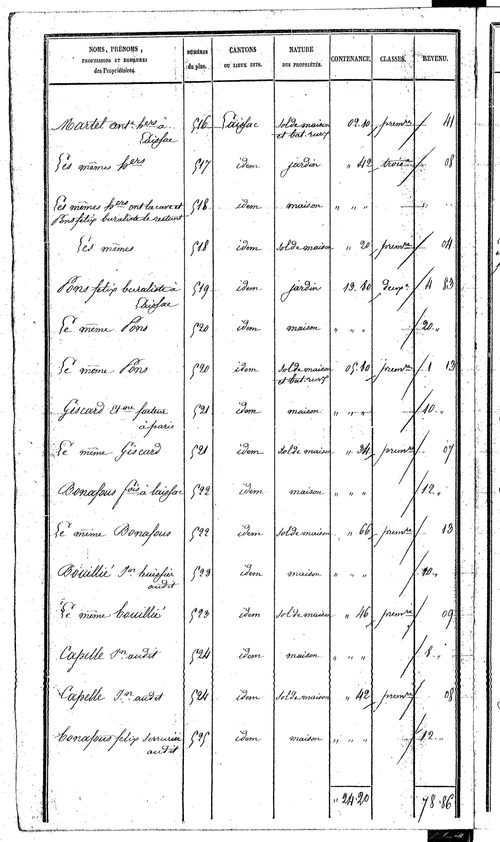 NOMS, PRÉNOMS, PROFESSIONS ET DEMEURES des Propriétaires. NUMÉROS du plan. CANTONS OU LIEUX DITS. NATURE DES PROPRIÉTÉS. CONTENANCE. CLASSES. REVENU.
Martel ant. hers à 516 Laissac sol de maison 02.10 premre 41
Laissac et bat. rux
Les mêmes hers 517 idem jardin " 42 trois 08
Les mêmes hers ont la cave et 518 idem maison " " "
Pons felix buraliste le restant
Les mêmes 518 idem sol de maison " 20 premre 04
Pons felix buraliste à 519 idem jardin 13.10 deux 4 83
Laissac
Le même Pons 520 idem maison " " " 20 "
Le même Pons 520 idem sol de maison 05.80 premre 1 13
et bat. rux
Giscard facteur 521 idem maison " " " 10 "
à paris
Le même Giscard 521 idem sol de maison " 34 premre 07
Bonafous fois à laissac 522 idem maison " " " 12 "
Le même Bonafous 522 idem sol de maison " 66 premre 13
Bouillié Jn huissier 523 idem maison " " " 10 "
audit
Le même bouillié 523 idem sol de maison " 46 premre 09
Capelle Jn audit 524 idem maison " " " 8 "
Capelle Jn audit 524 idem sol de maison " 42 premre 08
bonafous felix serrurier 525 idem maison " " " 12
audit
" 24.20 78.86